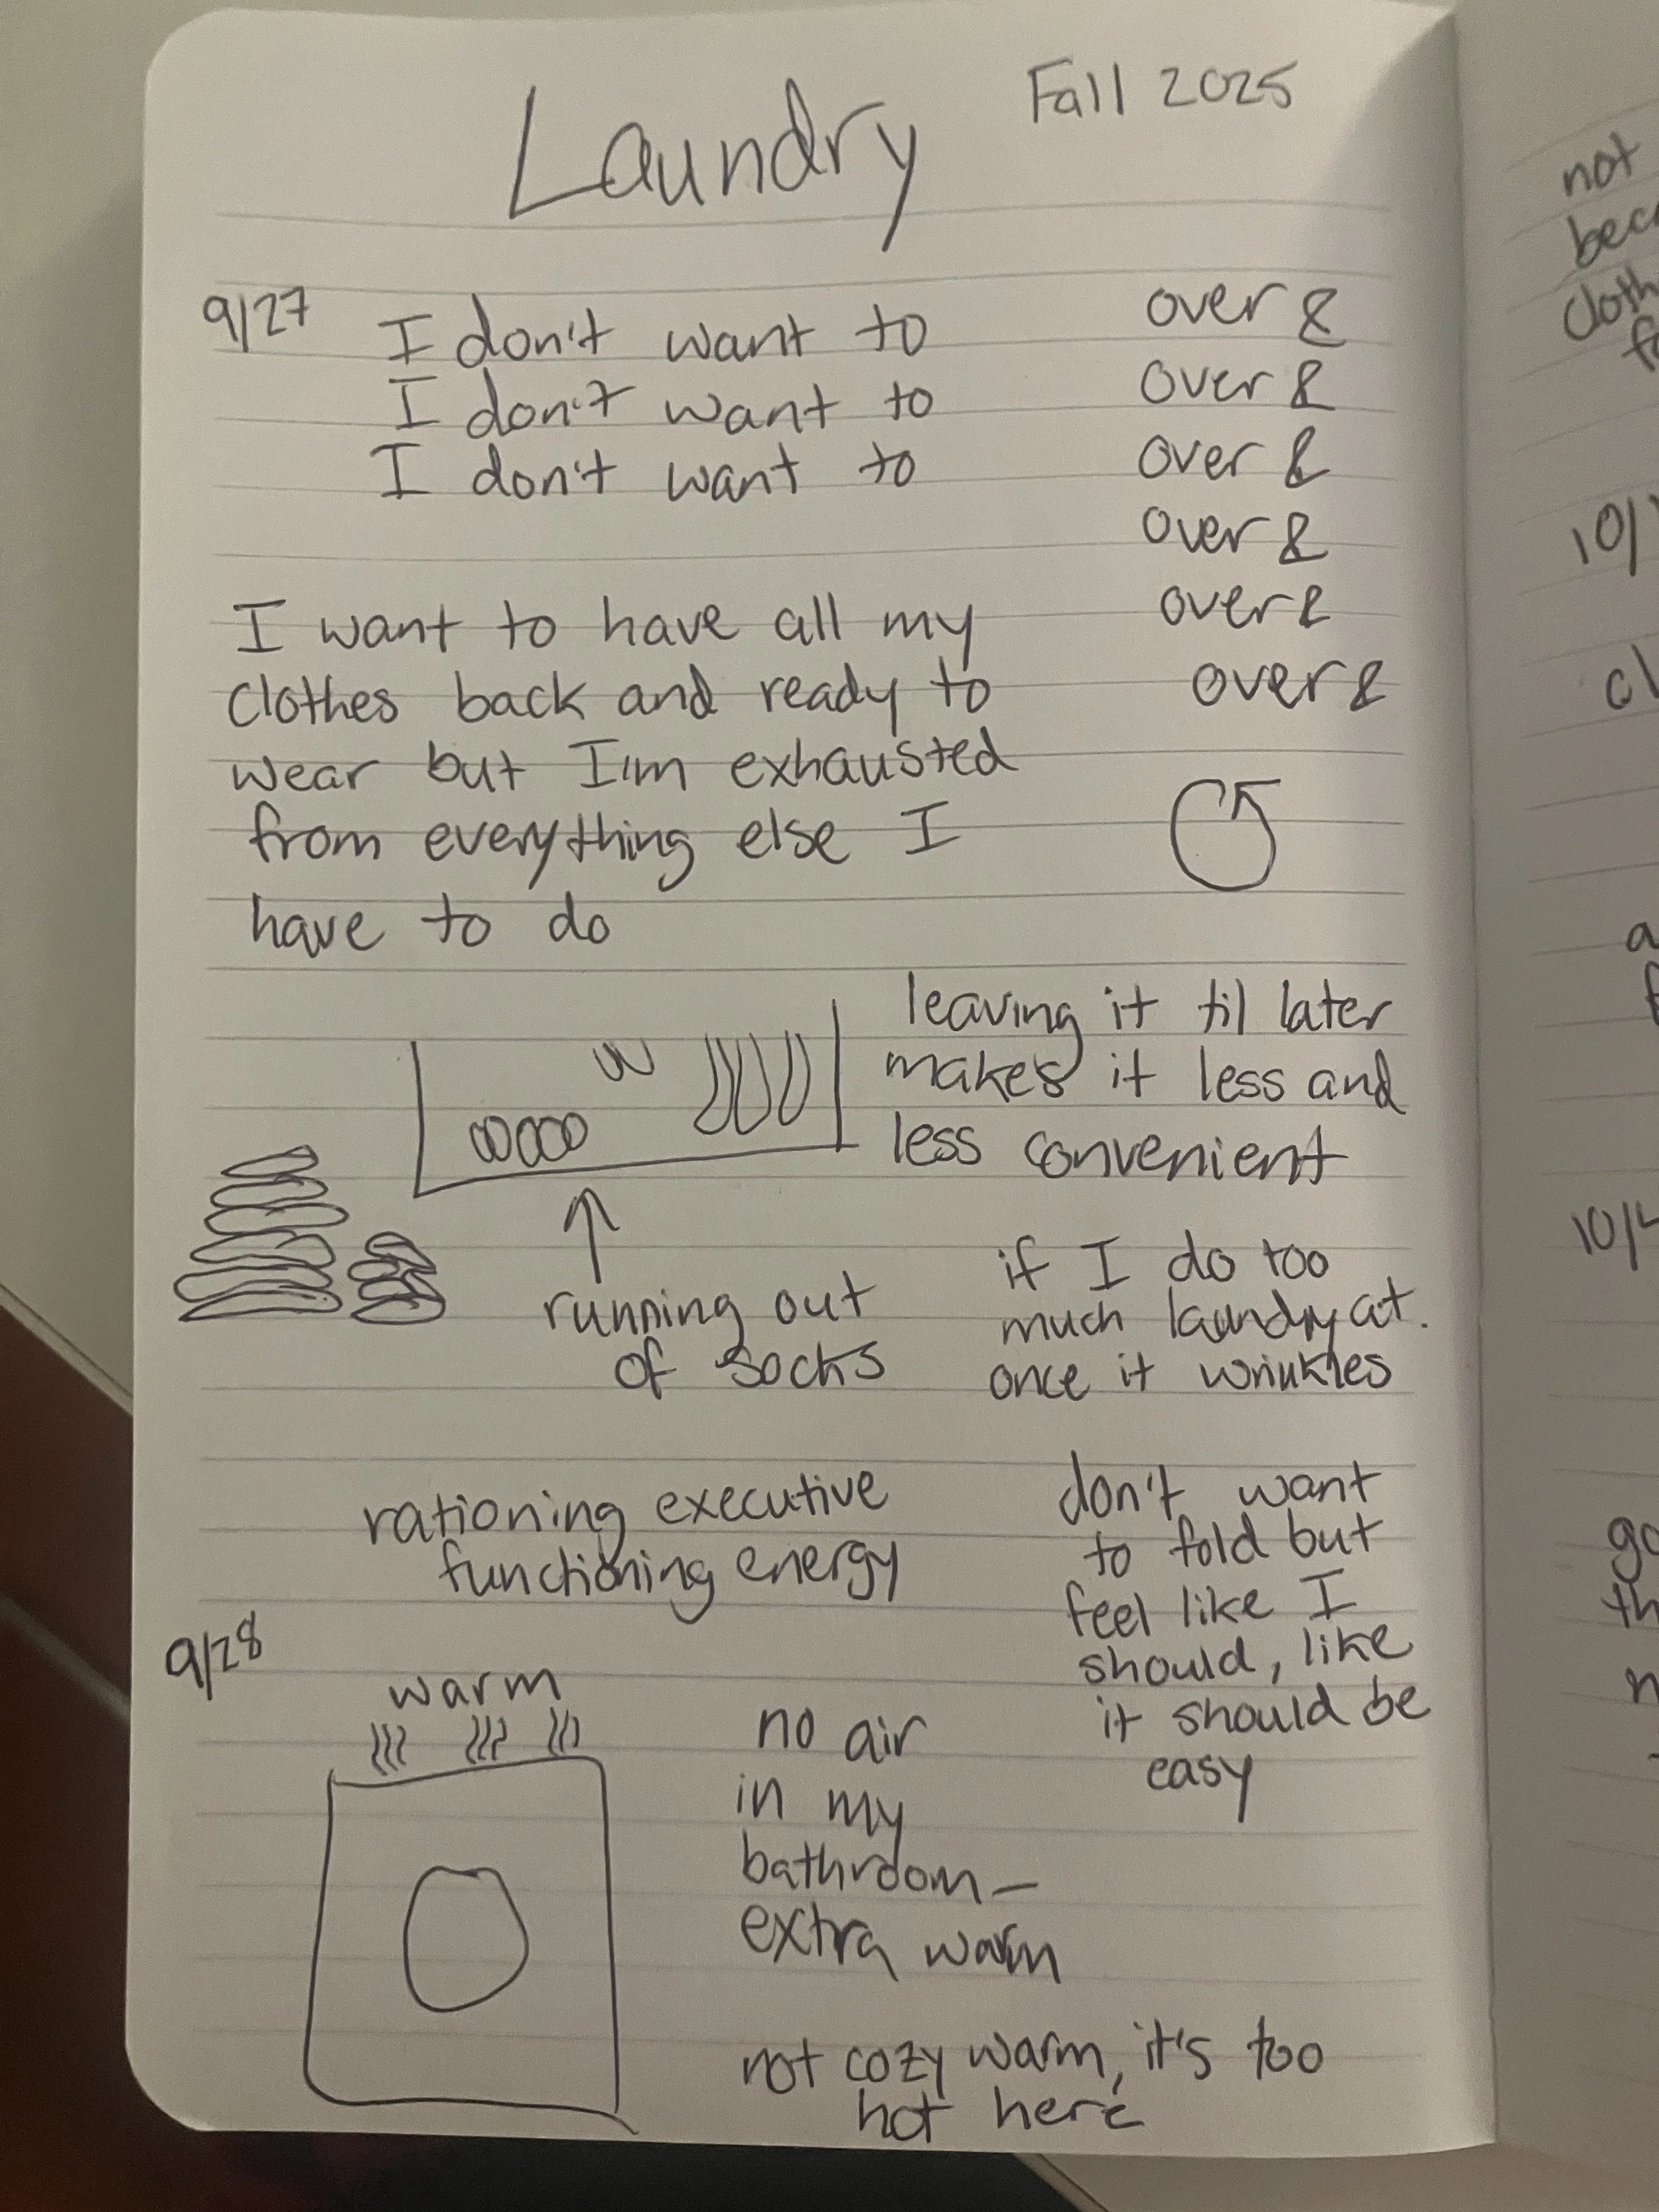 Laundry
Fall 2025
9/27
I don't want to
I don't want to
I don't want to
over &
over &
over &
over &
over &
over &
I want to have all my
clothes back and ready to
wear but I'm exhausted
from everything else I
have to do
leaving it til later
makes it less and
less convenient
running out
of socks
if I do too
much laundry at
once it wrinkles
rationing executive
functioning energy
don't want
to fold but
feel like I
should, like
it should be
easy
9/28
warm
no air
in my
bathroom—
extra warm
not cozy warm, it's too
hot here
not
10/
10/4